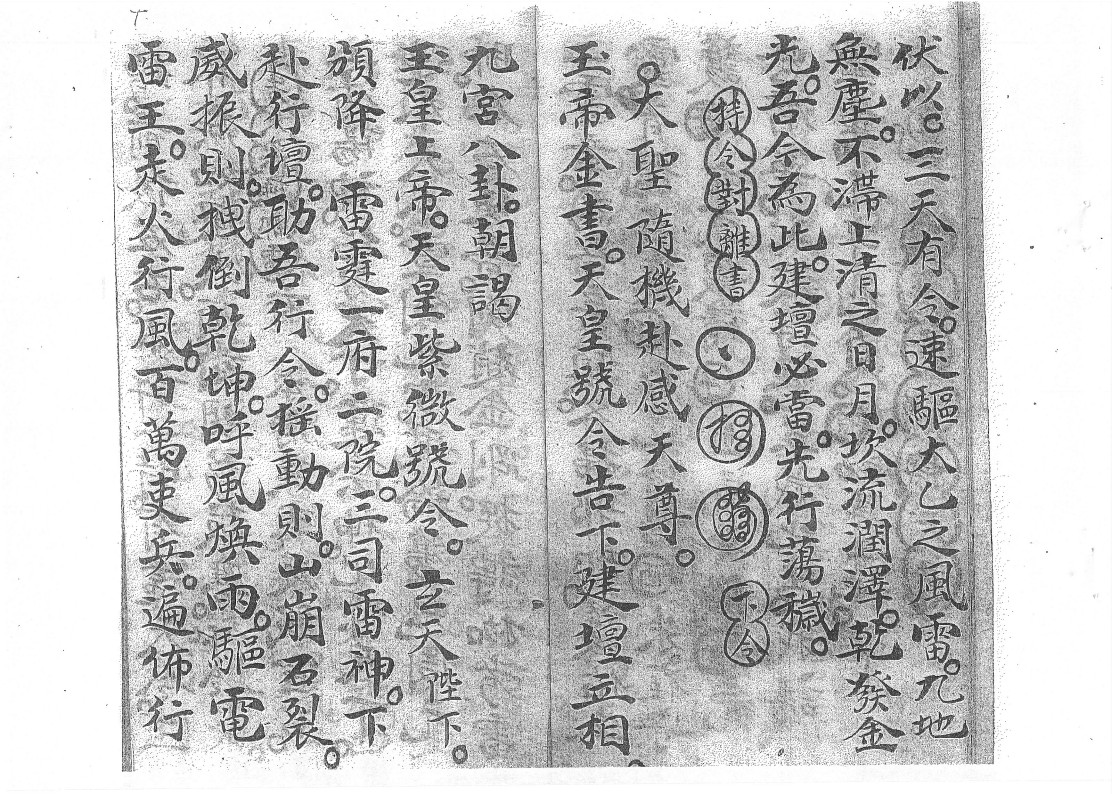 伏以。三天有令。速驅大乙之風雷。九地
無塵。不滯上清之日月。坎流潤澤。乾發金
光。吾今為此。建壇必當。先行蕩穢。
持令對離書 下令
大聖隨機赴感天尊。
玉帝金書。天皇號令告下。建壇立相。
九宮八卦。朝謁
玉皇上帝。天皇紫微號令。玄天陛下。
頒降雷霆一府二院。三司雷神。下
赴行壇。助吾行令。搖動則。山崩石裂。
威振則。拽倒乾坤。呼風煥雨。驅電
雷王。走火行風。百萬吏兵。遍佈行